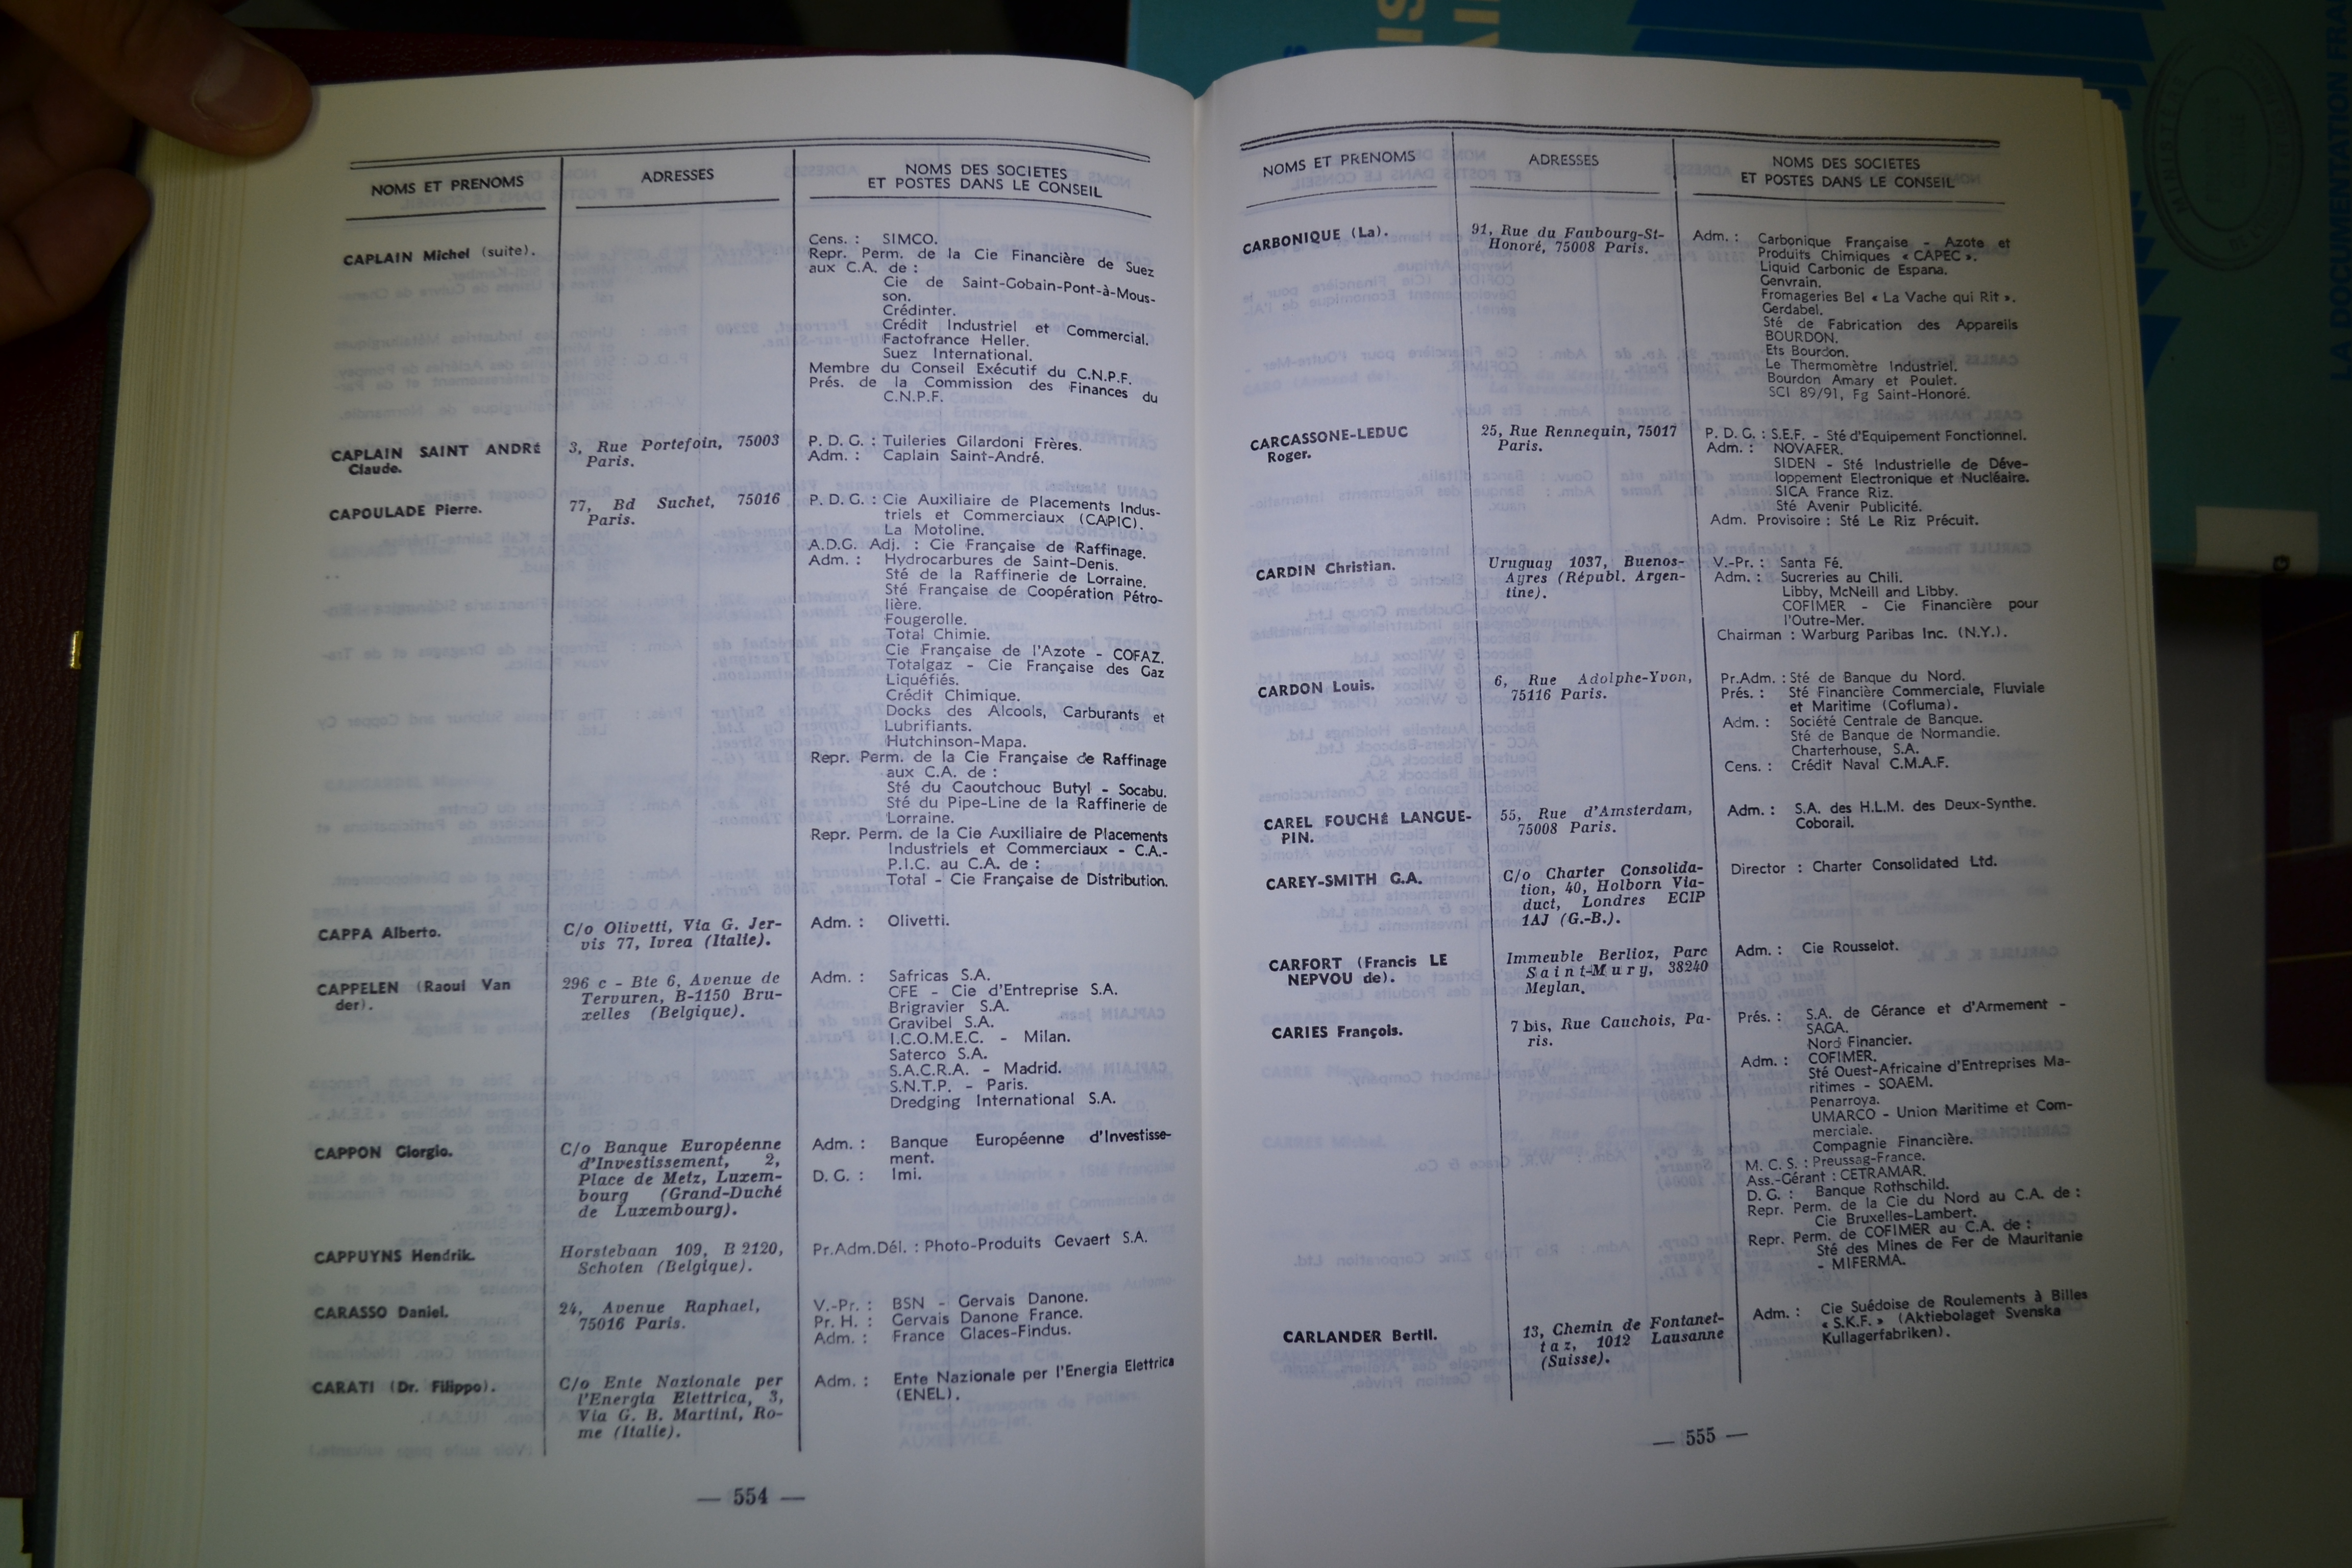 NOMS ET PRENOMS
ADRESSES
NOMS DES SOCIETES
ET POSTES DANS LE CONSEIL
CAPLAIN Michel (suite).
Cens. : SIMCO.
Repr. Perm. de la Cie Financière de Suez
aux C.A. de :
Cie de Saint-Gobain-Pont-à-Mous-
son.
Crédinter.
Crédit Industriel et Commercial.
Factofrance Heller.
Suez International.
Membre du Conseil Exécutif du C.N.P.F.
Prés. de la Commission des Finances du
C.N.P.F.
CAPLAIN SAINT ANDRÉ
Claude.
3, Rue Portefoin, 75003
Paris.
P. D. G. : Tuileries Gilardoni Frères.
Adm. : Caplain Saint-André.
CAPOULADE Pierre.
77, Bd Suchet, 75016
Paris.
P. D. G. : Cie Auxiliaire de Placements Indus-
triels et Commerciaux (CAPIC).
La Motoline.
A.D.G. Adj. : Cie Française de Raffinage.
Adm. : Hydrocarbures de Saint-Denis.
Sté de la Raffinerie de Lorraine.
Sté Française de Coopération Pétro-
lière.
Fougerolle.
Total Chimie.
Cie Française de l'Azote - COFAZ.
Totalgaz - Cie Française des Gaz
Liquéfiés.
Crédit Chimique.
Docks des Alcools, Carburants et
Lubrifiants.
Hutchinson-Mapa.
Repr. Perm. de la Cie Française de Raffinage
aux C.A. de :
Sté du Caoutchouc Butyl - Socabu.
Sté du Pipe-Line de la Raffinerie de
Lorraine.
Repr. Perm. de la Cie Auxiliaire de Placements
Industriels et Commerciaux - C.A.-
P.I.C. au C.A. de :
Total - Cie Française de Distribution.
CAPPA Alberto.
C/o Olivetti, Via G. Jer-
vis 77, Ivrea (Italie).
Adm. : Olivetti.
CAPPELEN (Raoul Van
der).
296 c - Bte 6, Avenue de
Tervuren, B-1150 Bru-
xelles (Belgique).
Adm. : Safricas S.A.
CFE - Cie d'Entreprise S.A.
Brigravier S.A.
Gravibel S.A.
I.C.O.M.E.C. - Milan.
Saterco S.A.
S.A.C.R.A. - Madrid.
S.N.T.P. - Paris.
Dredging International S.A.
CAPPON Giorgio.
C/o Banque Européenne
d'Investissement, 2,
Place de Metz, Luxem-
bourg (Grand-Duché
de Luxembourg).
Adm. : Banque Européenne d'Investisse-
ment.
D. G. : Imi.
CAPPUYNS Hendrik.
Horstebaan 109, B 2120,
Schoten (Belgique).
Pr.Adm.Dél. : Photo-Produits Gevaert S.A.
CARASSO Daniel.
24, Avenue Raphael,
75016 Paris.
V.-Pr. : BSN - Gervais Danone.
Pr. H. : Gervais Danone France.
Adm. : France Glaces-Findus.
CARATI (Dr. Filippo).
C/o Ente Nazionale per
l'Energia Elettrica, 3,
Via G. B. Martini, Ro-
me (Italie).
Adm. : Ente Nazionale per l'Energia Elettrica
(ENEL).
— 554 —
NOMS ET PRENOMS
ADRESSES
NOMS DES SOCIETES
ET POSTES DANS LE CONSEIL
CARBONIQUE (La).
91, Rue du Faubourg-St-
Honoré, 75008 Paris.
Adm. : Carbonique Française - Azote et
Produits Chimiques « CAPEC ».
Liquid Carbonic de Espana.
Genvrain.
Fromageries Bel « La Vache qui Rit ».
Gerdabel.
Sté de Fabrication des Appareils
BOURDON.
Ets Bourdon.
Le Thermomètre Industriel.
Bourdon Amary et Poulet.
SCI 89/91, Fg Saint-Honoré.
CARCASSONE-LEDUC
Roger.
25, Rue Rennequin, 75017
Paris.
P. D. G. : S.E.F. - Sté d'Equipement Fonctionnel.
Adm. : NOVAFER.
SIDEN - Sté Industrielle de Déve-
loppement Electronique et Nucléaire.
SICA France Riz.
Sté Avenir Publicité.
Adm. Provisoire : Sté Le Riz Précuit.
CARDIN Christian.
Uruguay 1037, Buenos-
Ayres (Républ. Argen-
tine).
V.-Pr. : Santa Fé.
Adm. : Sucreries au Chili.
Libby, McNeill and Libby.
COFIMER - Cie Financière pour
l'Outre-Mer.
Chairman : Warburg Paribas Inc. (N.Y.).
CARDON Louis.
6, Rue Adolphe-Yvon,
75116 Paris.
Pr.Adm. : Sté de Banque du Nord.
Prés. : Sté Financière Commerciale, Fluviale
et Maritime (Cofluma).
Adm. : Société Centrale de Banque.
Sté de Banque de Normandie.
Charterhouse, S.A.
Cens. : Crédit Naval C.M.A.F.
CAREL FOUCHÉ LANGUE-
PIN.
55, Rue d'Amsterdam,
75008 Paris.
Adm. : S.A. des H.L.M. des Deux-Synthe.
Coborail.
CAREY-SMITH G.A.
C/o Charter Consolida-
tion, 40, Holborn Via-
duct, Londres ECIP
1AJ (G.-B.).
Director : Charter Consolidated Ltd.
CARFORT (Francis LE
NEPVOU de).
Immeuble Berlioz, Parc
Saint-Mury, 38240
Meylan.
Adm. : Cie Rousselot.
CARIES François.
7 bis, Rue Cauchois, Pa-
ris.
Prés. : S.A. de Gérance et d'Armement -
SAGA.
Nord Financier.
Adm. : COFIMER.
Sté Ouest-Africaine d'Entreprises Ma-
ritimes - SOAEM.
Penarroya.
UMARCO - Union Maritime et Com-
merciale.
Compagnie Financière.
M. C. S. : Preussag-France.
Ass.-Gérant : CETRAMAR.
D. G. : Banque Rothschild.
Repr. Perm. de la Cie du Nord au C.A. de :
Cie Bruxelles-Lambert.
Repr. Perm. de COFIMER au C.A. de :
Sté des Mines de Fer de Mauritanie
- MIFERMA.
CARLANDER Bertil.
13, Chemin de Fontanet-
taz, 1012 Lausanne
(Suisse).
Adm. : Cie Suédoise de Roulements à Billes
« S.K.F. » (Aktiebolaget Svenska
Kullagerfabriken).
— 555 —
LA DOCUMENTATION FRA